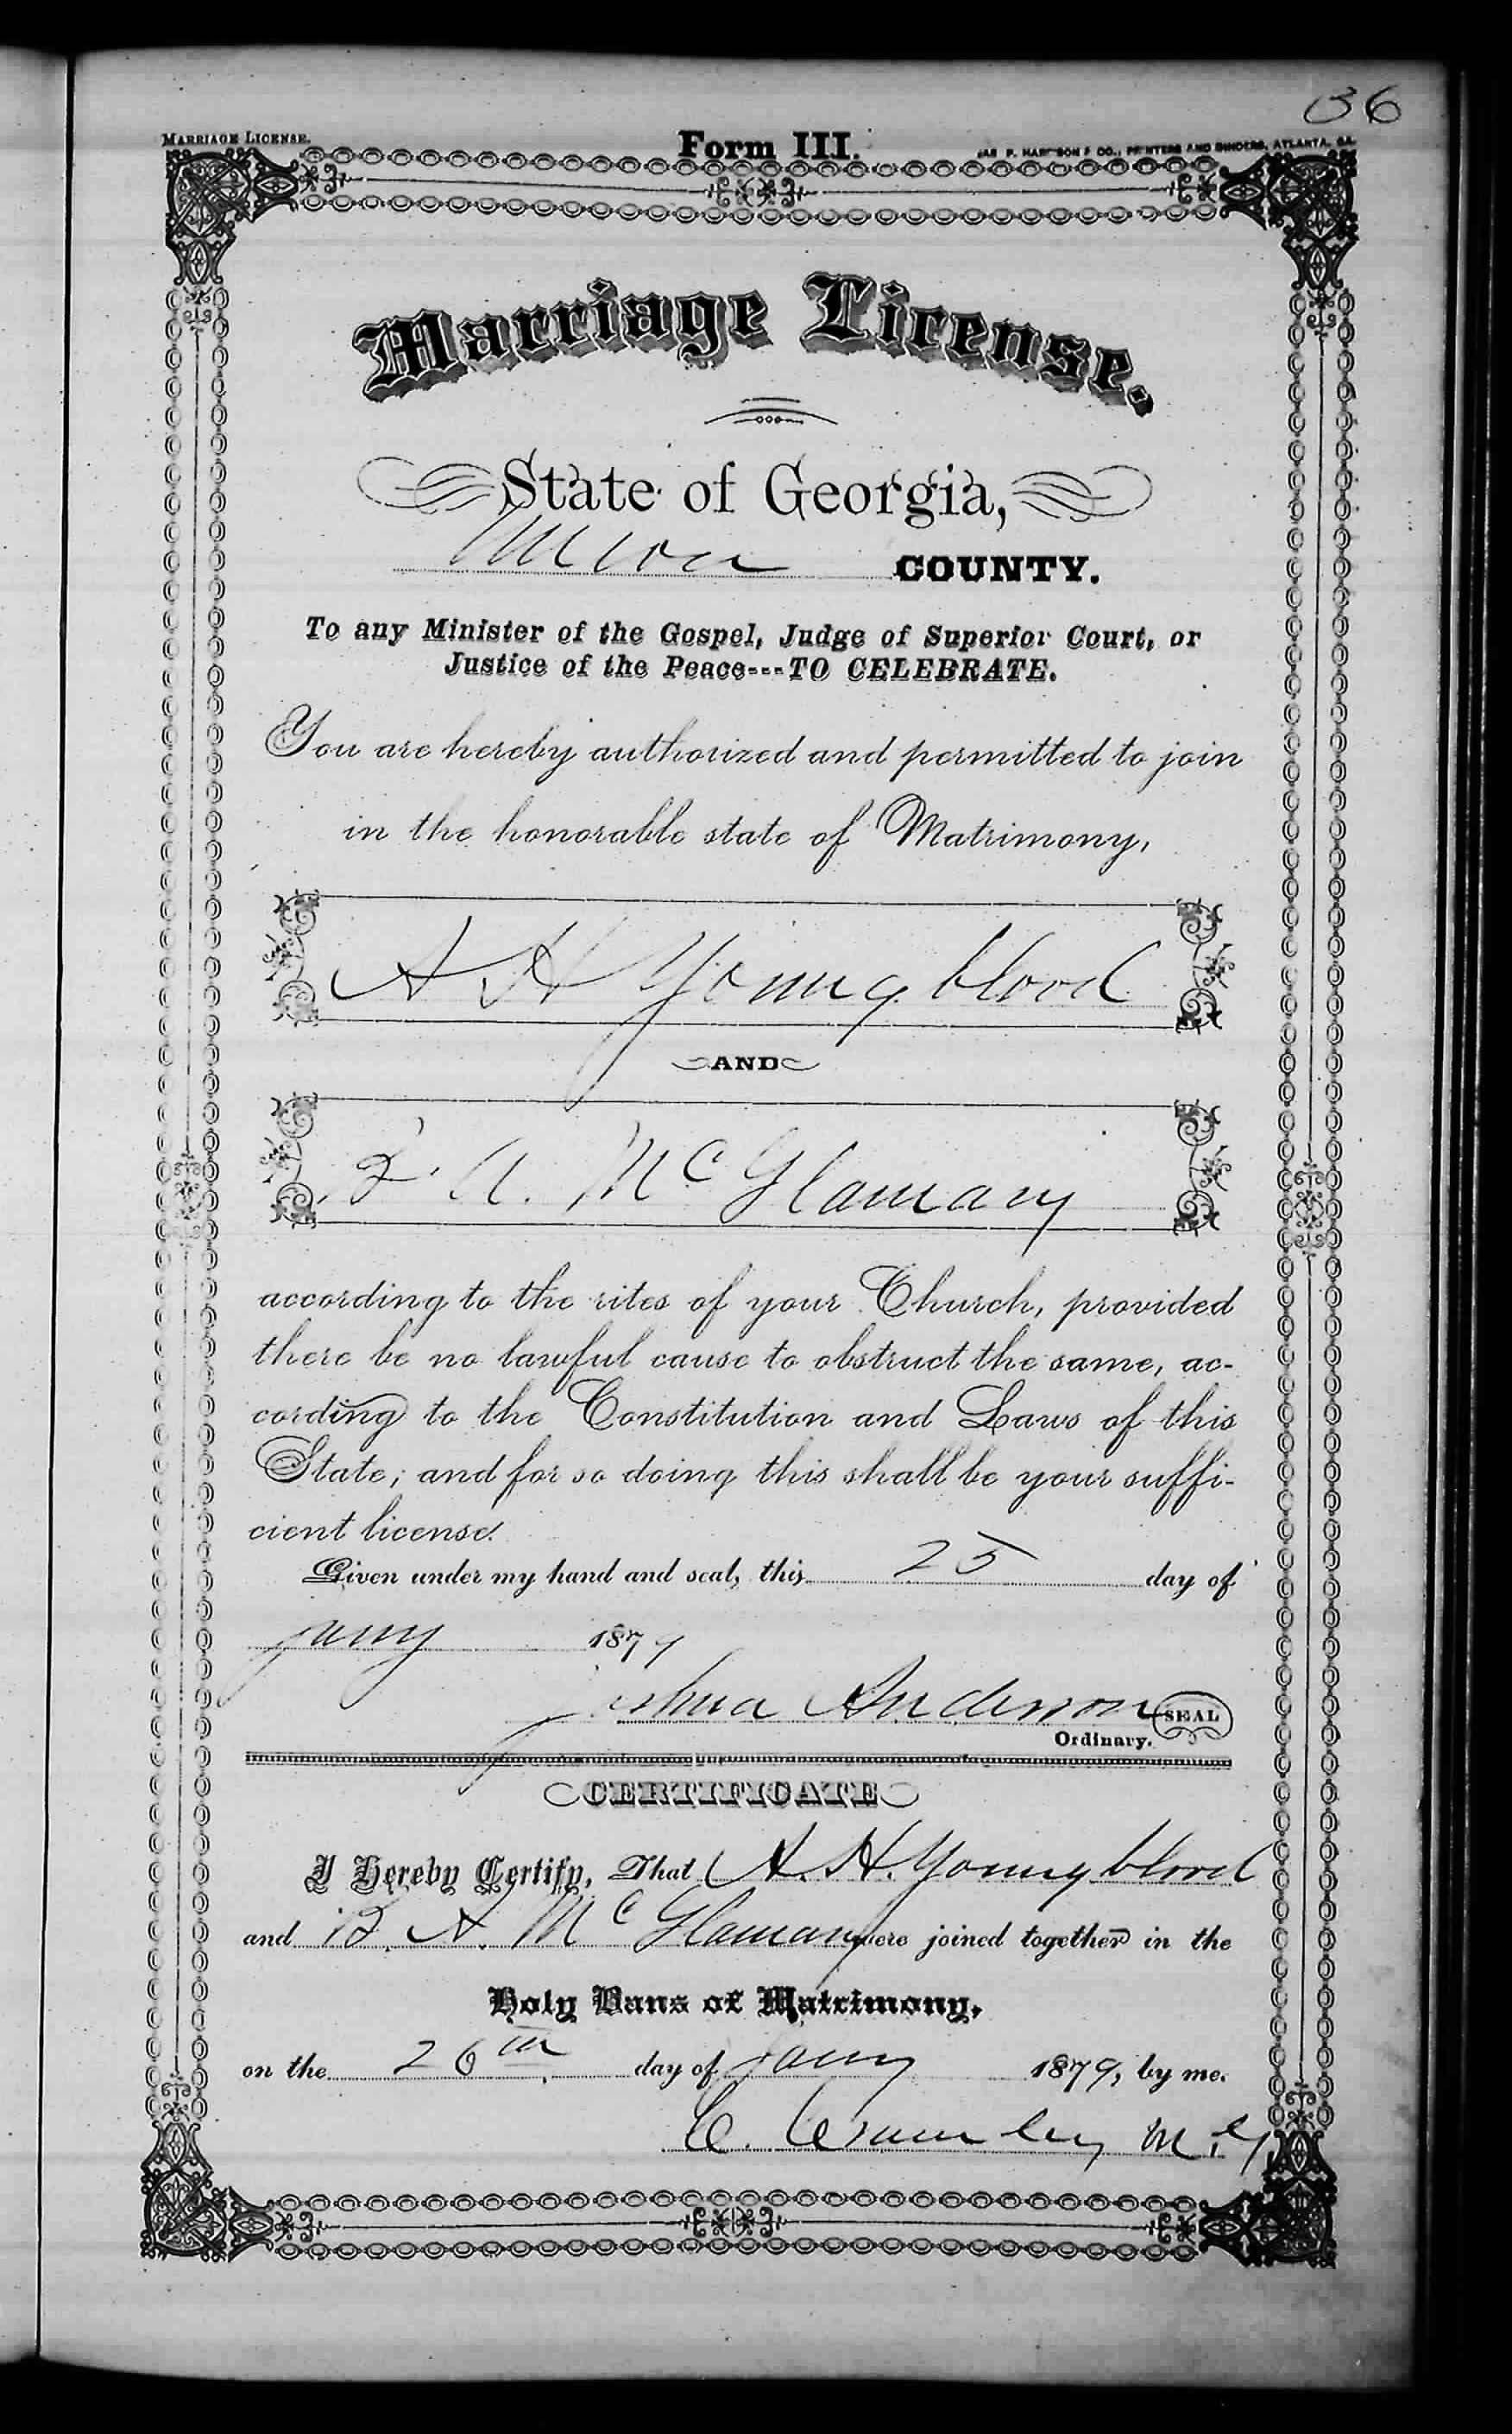 36
MARRIAGE LICENSE.
Form III.
JAS P. HARRISON & CO., PRINTERS AND BINDERS, ATLANTA, GA.
Marriage License.
State of Georgia,
Union COUNTY.
To any Minister of the Gospel, Judge of Superior Court, or
Justice of the Peace---TO CELEBRATE.
You are hereby authorized and permitted to join
in the honorable state of Matrimony,
A H Youngblood
AND
B. A. McGlamary
according to the rites of your Church, provided
there be no lawful cause to obstruct the same, ac-
cording to the Constitution and Laws of this
State; and for so doing this shall be your suffi-
cient license.
Given under my hand and seal, this 25 day of
Jany 1879
Joshua Anderson SEAL
Ordinary.
CERTIFICATE
I Hereby Certify, That A. H. Youngblood
and B. A. McGlamary were joined together in the
Holy Bans of Matrimony,
on the 26th day of Jany 1879, by me.
C. Crumley M. G